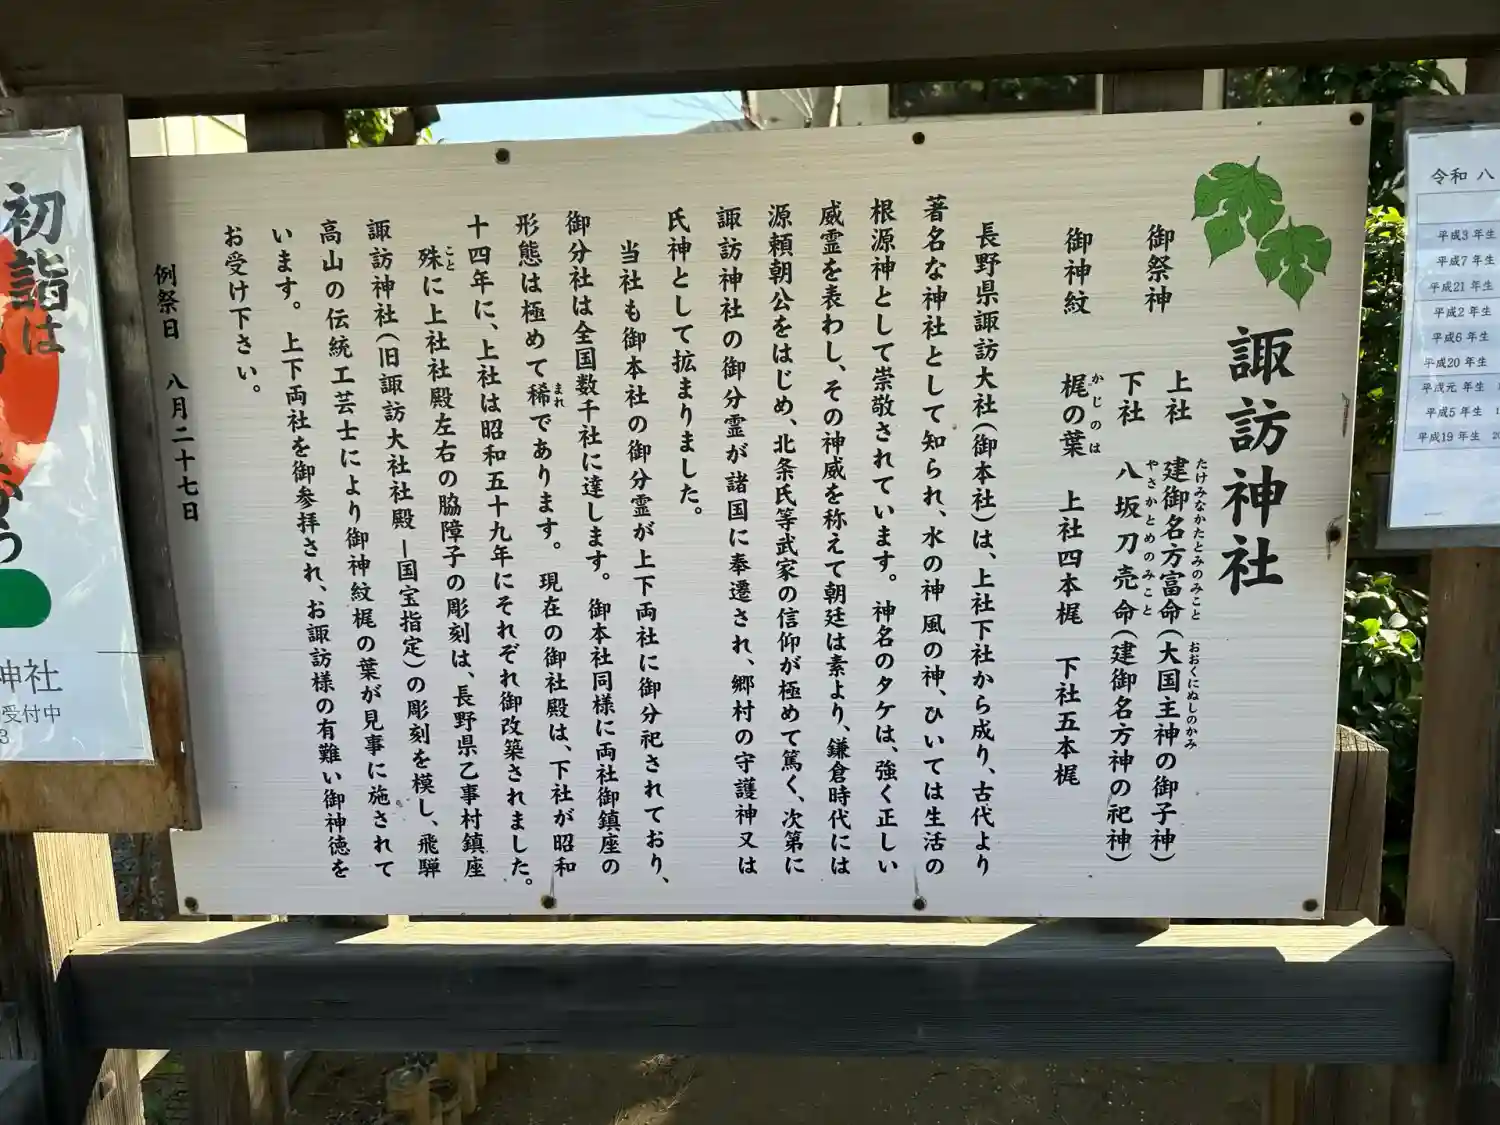 諏訪神社
御祭神　上社　建御名方富命(大国主神の御子神)
たけみなかたとみのみこと　おおくにぬしのかみ
下社　八坂刀売命(建御名方神の祀神)
やさかとめのみこと
御神紋　梶の葉　上社四本梶　下社五本梶
かじのは
長野県諏訪大社(御本社)は、上社下社から成り、古代より
著名な神社として知られ、水の神 風の神、ひいては生活の
根源神として崇敬されています。神名のタケは、強く正しい
威霊を表わし、その神威を称えて朝廷は素より、鎌倉時代には
源頼朝公をはじめ、北条氏等武家の信仰が極めて篤く、次第に
諏訪神社の御分霊が諸国に奉遷され、郷村の守護神又は
氏神として拡まりました。
当社も御本社の御分霊が上下両社に御分祀されており、
御分社は全国数千社に達します。御本社同様に両社御鎮座の
形態は極めて稀であります。現在の御社殿は、下社が昭和
まれ
十四年に、上社は昭和五十九年にそれぞれ御改築されました。
殊に上社社殿左右の脇障子の彫刻は、長野県乙事村鎮座
こと
諏訪神社(旧諏訪大社社殿―国宝指定)の彫刻を模し、飛騨
高山の伝統工芸士により御神紋梶の葉が見事に施されて
います。上下両社を御参拝され、お諏訪様の有難い御神徳を
お受け下さい。
例祭日　八月二十七日
初詣は
神社
受付中
3
令和 八
平成3年生
平成7年生
平成21年生
平成2年生
平成6年生
平成20年生
平成元年生
平成5年生
平成19年生